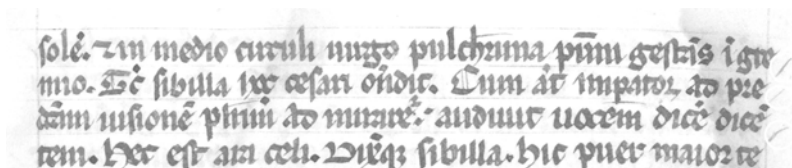 solē. ⁊ in medio circuli uirgo pulcherrima pūm gestās ī gre
mio. Tc̄ sibilla hec cesari on̄dit. Cum aūt impator ad pre
dcām uisionē plimū admirareť᷑. audiuit uocem dicē dicē
tem. Hec est ara celi. Dixitq; sibilla. hic puer maior te